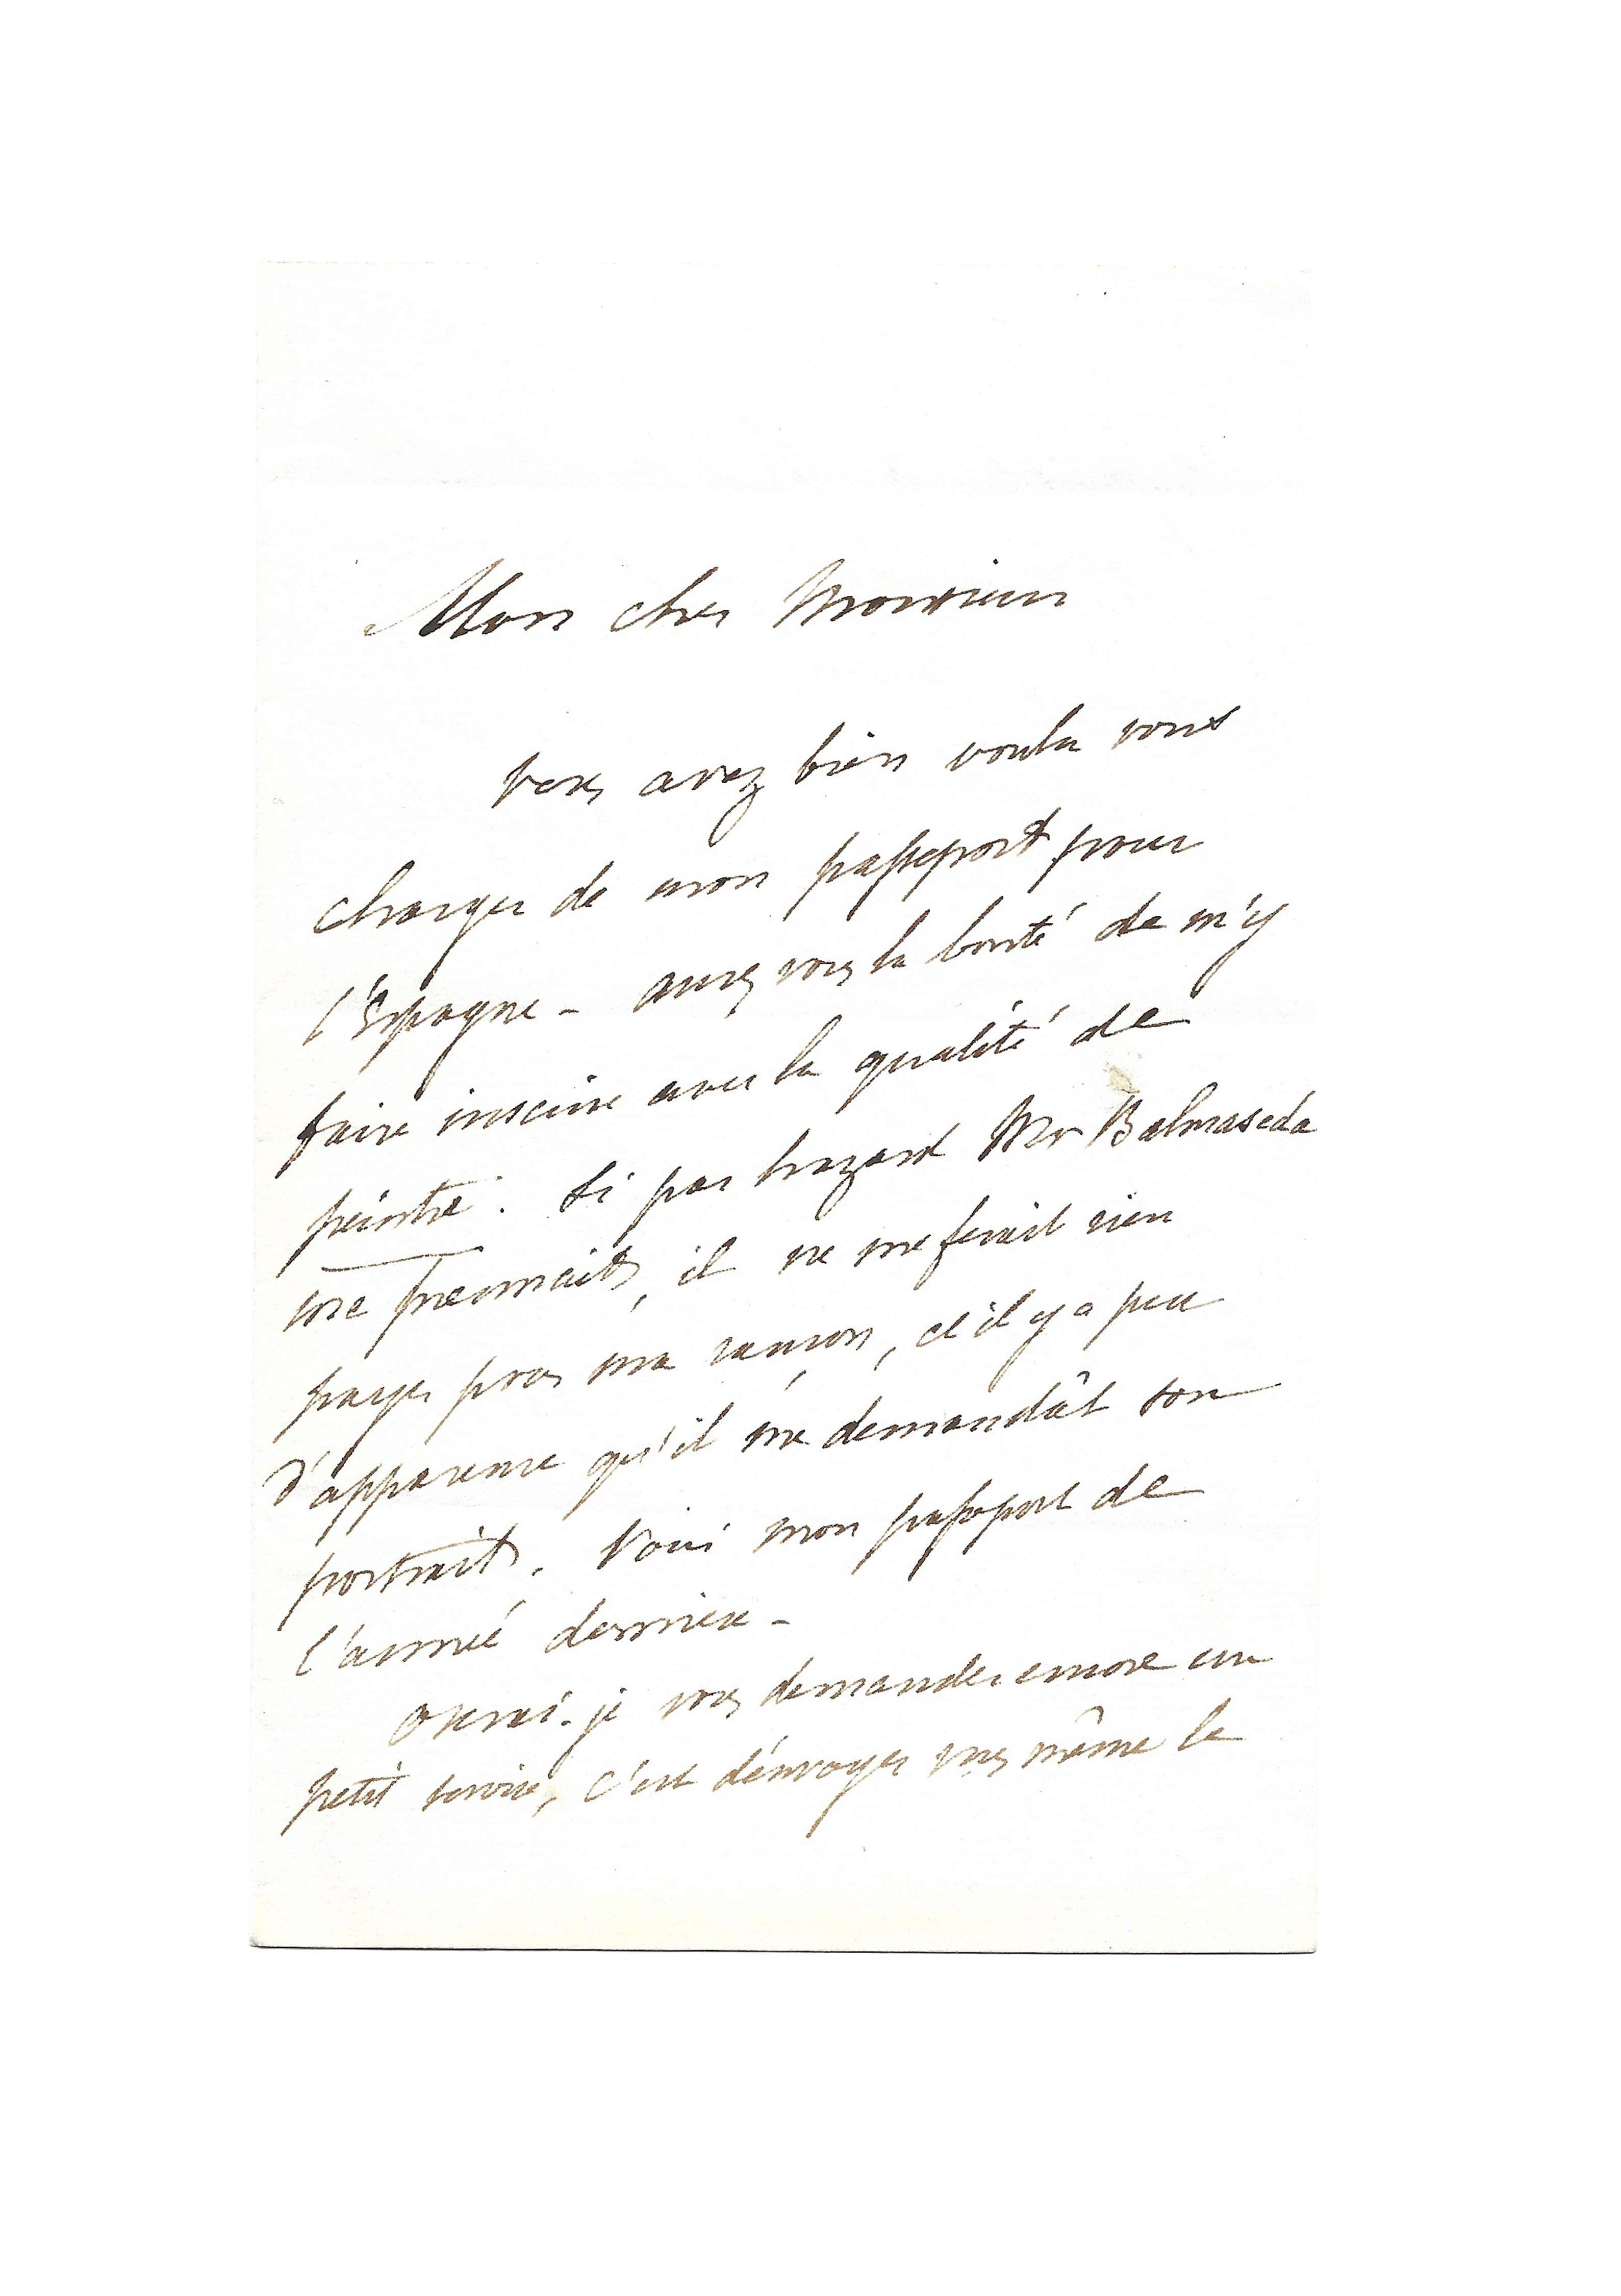 Mon cher Monsieur
Vous avez bien voulu vous
charger de mon passeport pour
l'Espagne - aurez vous la bonté de m'y
faire inscrire avec la qualité de
peintre. Si par hazard Mr Balmaseda
me prennait, il ne me ferait rien
payer pour ma rançon, et il y a peu
d'apparence qu'il me demandât son
portrait. Voici mon passeport de
l'année dernière -
Oserai-je vous demander encore un
petit service, c'est d'envoyer vous même le